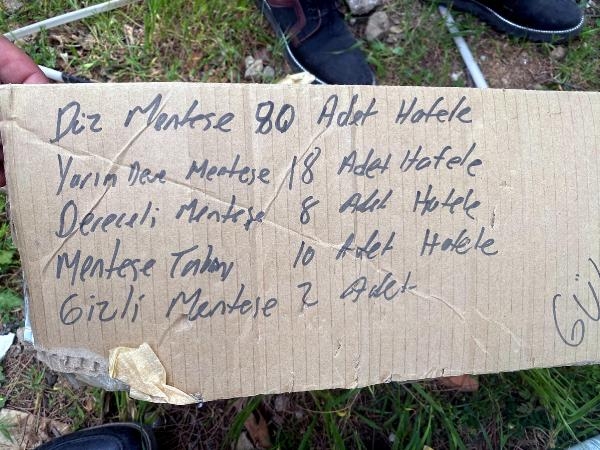 Düz Menteşe 80 Adet Hafele
Yarım Deve Menteşe 18 Adet Hafele
Dereceli Menteşe 8 Adet Hafele
Menteşe Tabanı 10 Adet Hafele
Gizli Menteşe 2 Adet